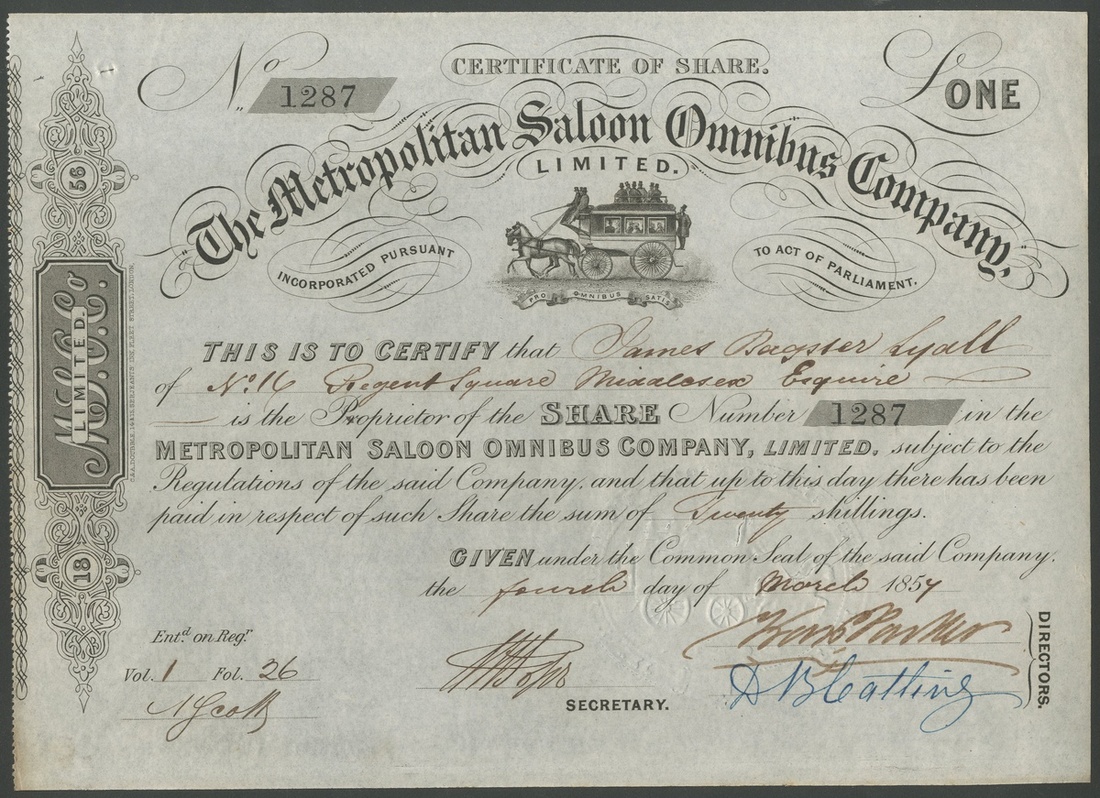 No 1287
CERTIFICATE OF SHARE.
L ONE
The Metropolitan Saloon Omnibus Company,
LIMITED.
INCORPORATED PURSUANT
TO ACT OF PARLIAMENT.
PRO OMNIBUS SATIS
THIS IS TO CERTIFY that James Bagster Lyall
of No. 16 Regent Square Middlesex Esquire
is the Proprietor of the SHARE Number 1287 in the
METROPOLITAN SALOON OMNIBUS COMPANY, LIMITED, subject to the
Regulations of the said Company, and that up to this day there has been
paid in respect of such Share the sum of Twenty shillings.
GIVEN under the Common Seal of the said Company,
the fourth day of March 1857
Entd. on Regr.
Vol. 1 Fol. 26
SECRETARY.
D B Catling
DIRECTORS.
18 56
M.S.O.Co.
LIMITED.